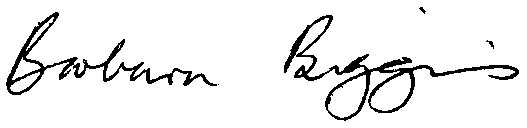 Barbara Biggins